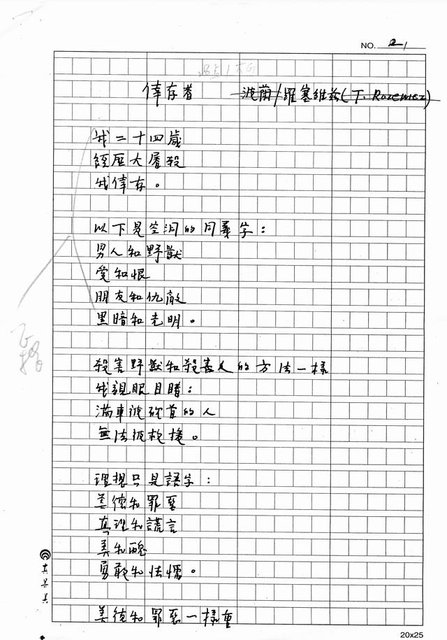 NO. 2-1
倖存者 波蘭/羅塞維茲(T. Rozewez)
我二十四歲
經歷大屠殺
我倖存。
以下是空洞的同義字：
男人和野獸
愛和恨
朋友和仇敵
黑暗和光明。
殺害野獸和殺害人的方法一樣
我親眼目睹：
滿車被砍首的人
無法被拯救。
理想只是語字：
美德和罪惡
真理和謊言
美和醜
勇敢和怯懦。
美德和罪惡一樣重
20x25